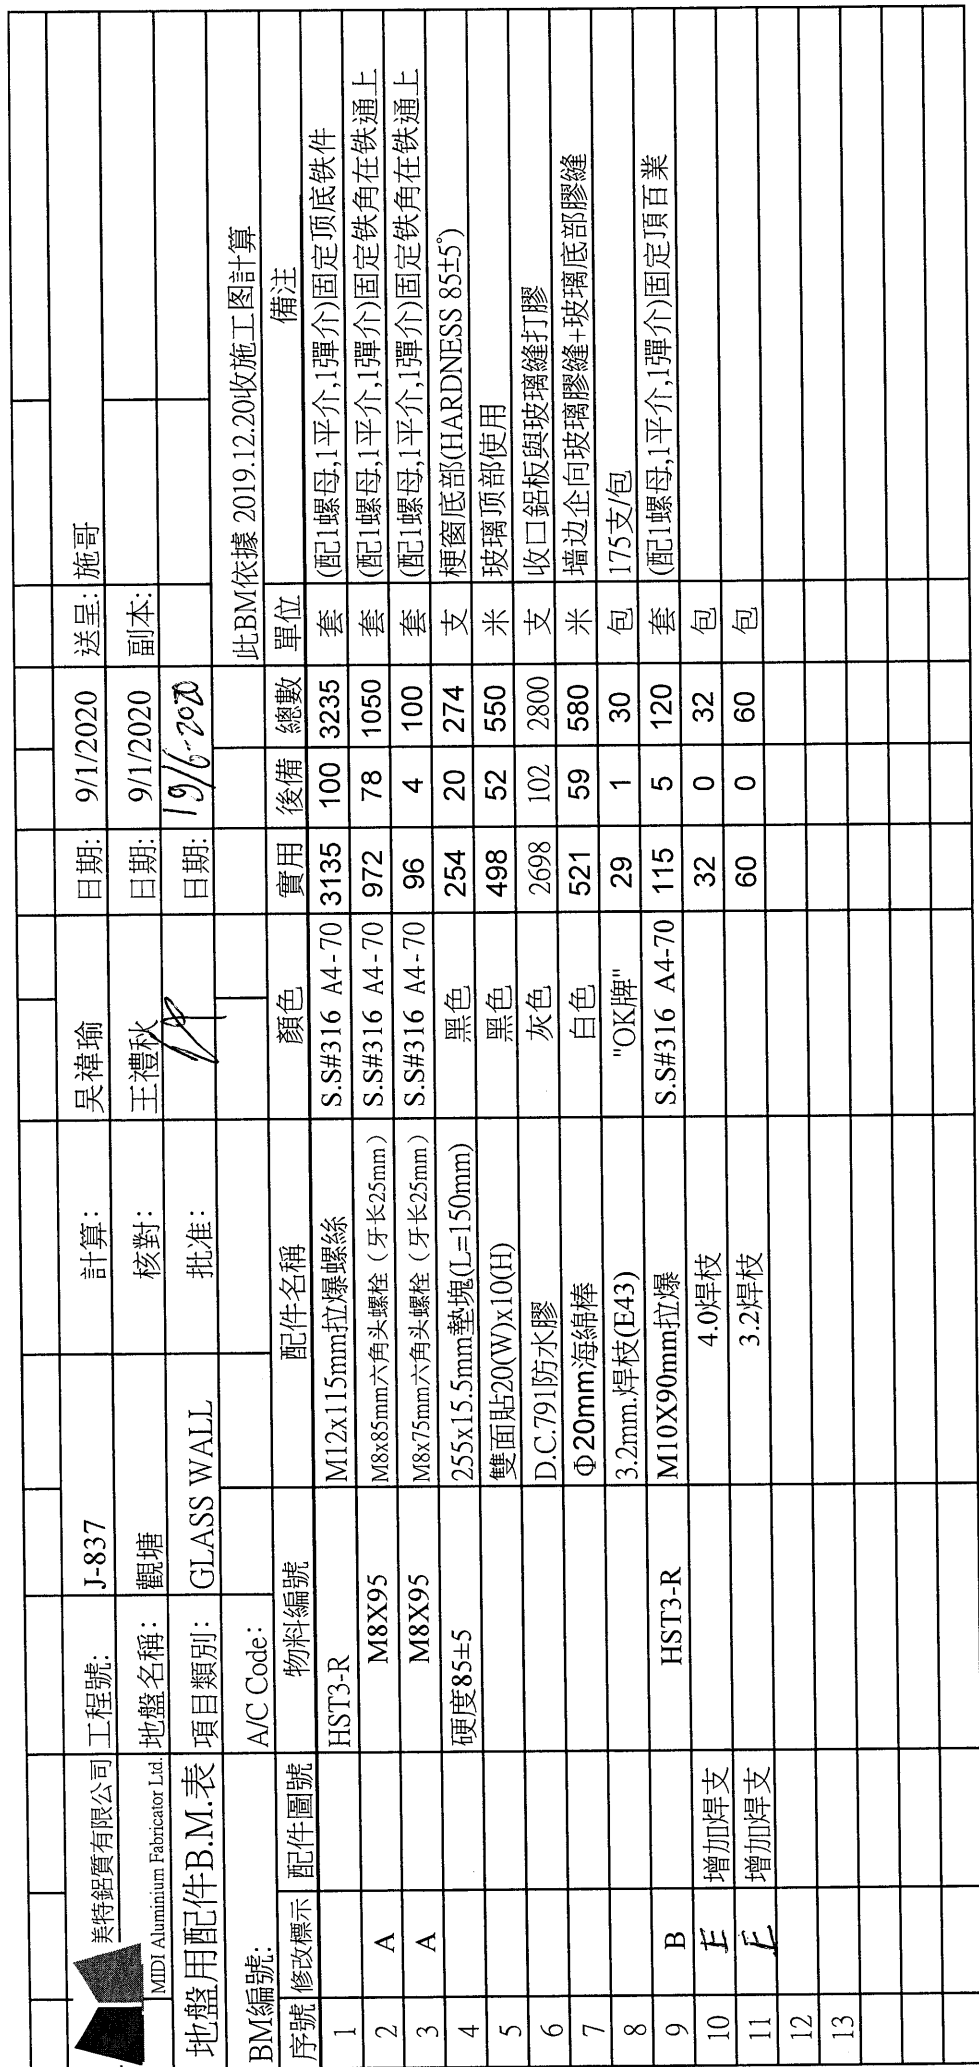 美特鋁質有限公司 工程號: J-837 計算: 吴禕瑜 日期: 9/1/2020 送呈: 施哥
MIDI Aluminium Fabricator Ltd. 地盤名稱: 觀塘 核對: 王禮秋 日期: 9/1/2020 副本:
地盤用配件B.M.表 項目類別: GLASS WALL 批准: 日期: 19/6-2020
BM編號: A/C Code: 此BM依據 2019.12.20收施工图計算
序號 修改標示 配件圖號 物料編號 配件名稱 顏色 實用 後備 總數 單位 備注
1 HST3-R M12x115mm拉爆螺絲 S.S#316 A4-70 3135 100 3235 套 (配1螺母,1平介,1彈介)固定顶底铁件
2 A M8X95 M8x85mm六角头螺栓（牙长25mm） S.S#316 A4-70 972 78 1050 套 (配1螺母,1平介,1彈介)固定铁角在铁通上
3 A M8X95 M8x75mm六角头螺栓（牙长25mm） S.S#316 A4-70 96 4 100 套 (配1螺母,1平介,1彈介)固定铁角在铁通上
4 硬度85±5 255x15.5mm墊塊(L=150mm) 黑色 254 20 274 支 梗窗底部(HARDNESS 85±5°)
5 雙面貼20(W)x10(H) 黑色 498 52 550 米 玻璃顶部使用
6 D.C.791防水膠 灰色 2698 102 2800 支 收口鋁板與玻璃縫打膠
7 Φ20mm海綿棒 白色 521 59 580 米 墙边企向玻璃膠縫+玻璃底部膠縫
8 3.2mm.焊枝(E43) "OK牌" 29 1 30 包 175支/包
9 B HST3-R M10X90mm拉爆 S.S#316 A4-70 115 5 120 套 (配1螺母,1平介,1彈介)固定頂百業
10 E 增加焊支 4.0焊枝 32 0 32 包
11 E 增加焊支 3.2焊枝 60 0 60 包
12
13